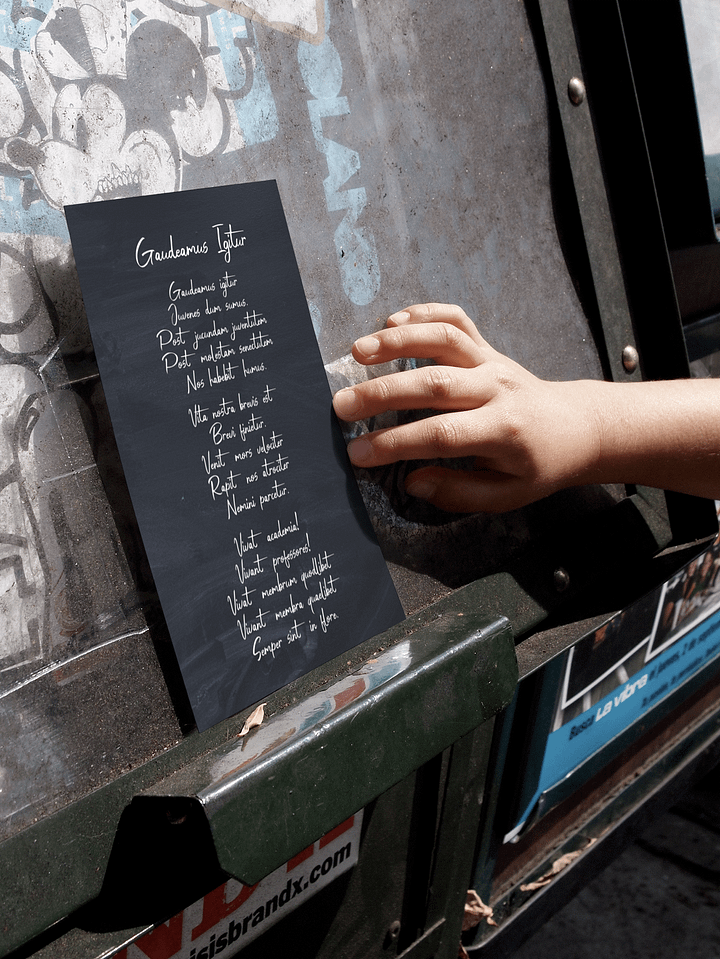 Gaudeamus Igitur
Gaudeamus igitur
Juvenes dum sumus.
Post jucundam juventutem
Post molestam senectutem
Nos habebit humus.
Vita nostra brevis est
Brevi finietur.
Venit mors velociter
Rapit nos atrociter
Nemini parcetur.
Vivat academia!
Vivant professores!
Vivat membrum quodlibet
Vivant membra quaelibet
Semper sint in flore.
Busca La vibra
isisbrandx.com